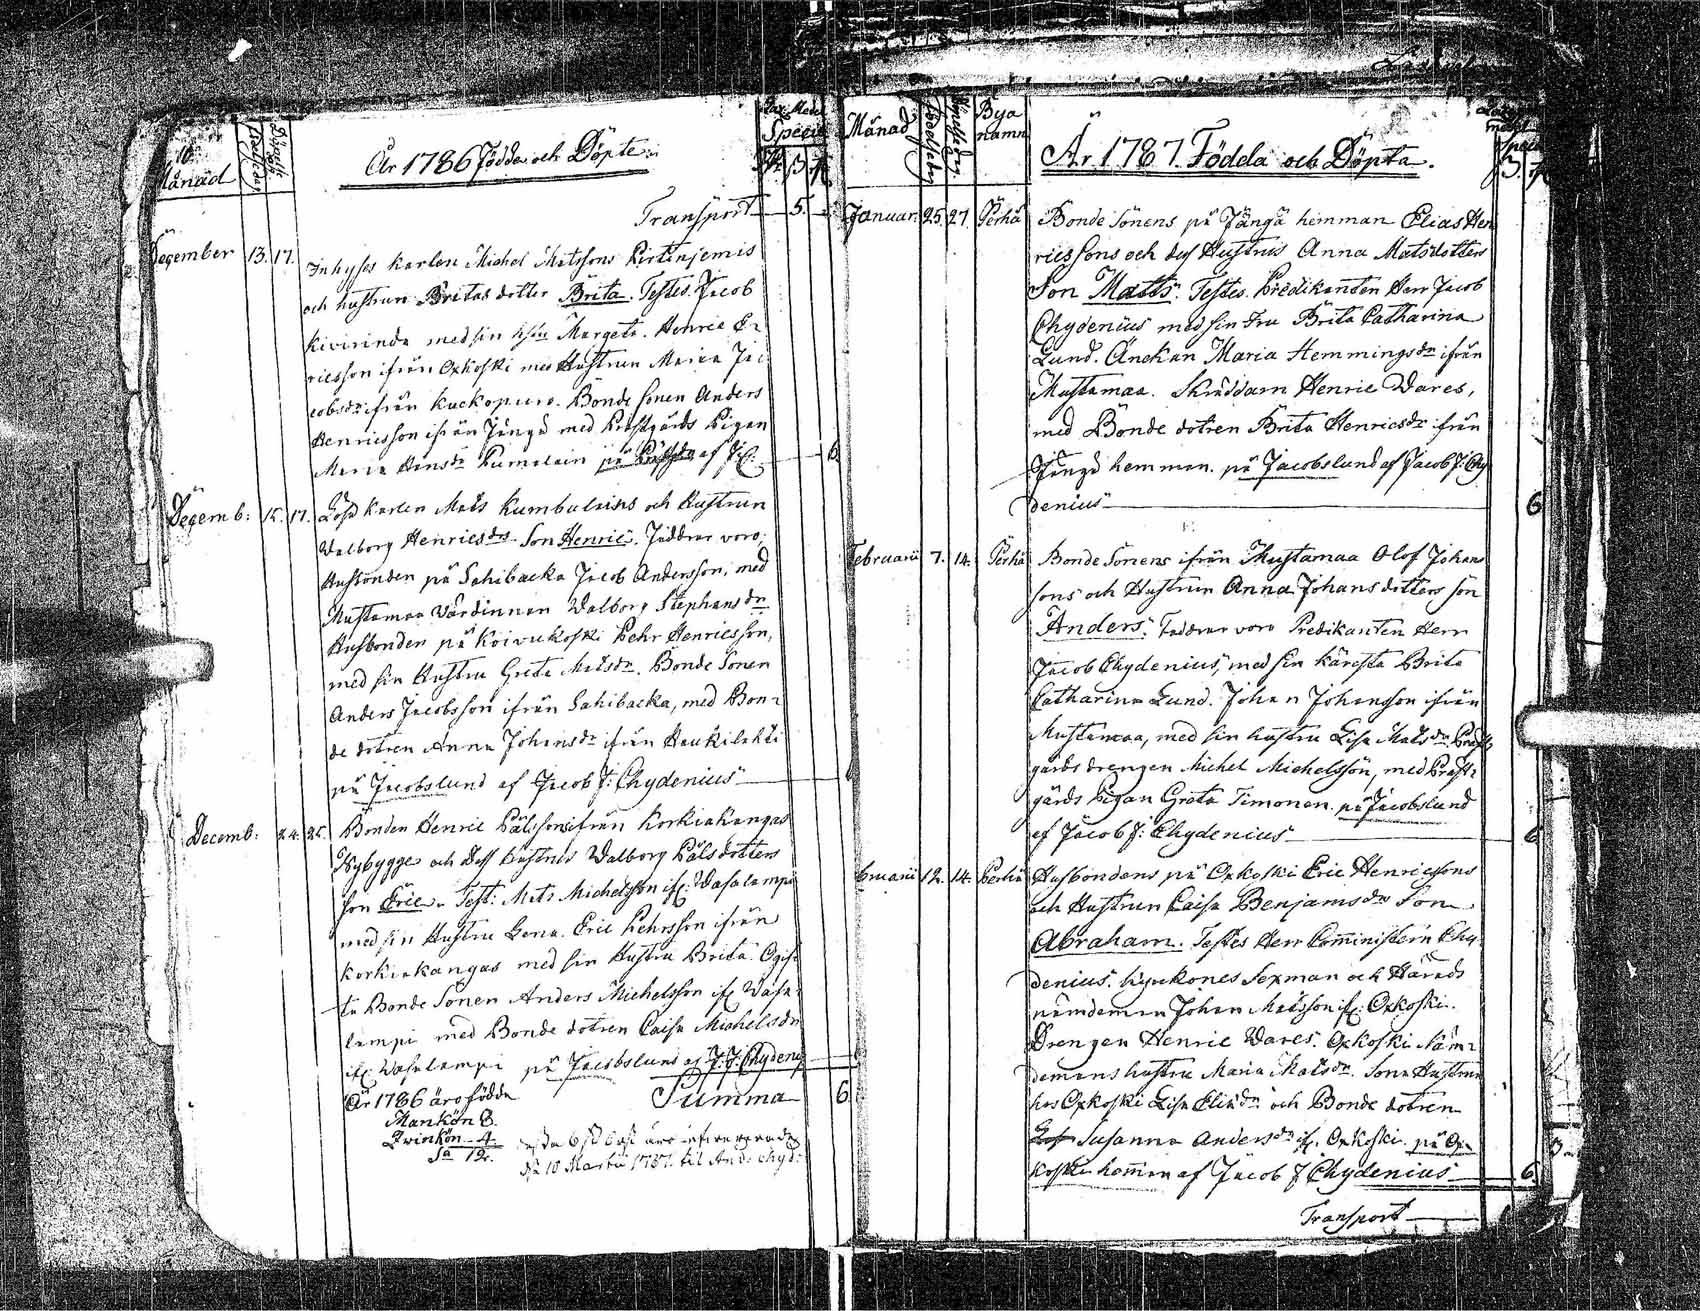 Månad
År 1786 Födde och Döpte
Specie
Transport 5.
December 13. 17. Inhyses karlen Michel Matssons Pirttinjemis
och hustrun Britas dotter Brita. Testes. Jacob
Kivirinda med sin hstu Margeta. Henric E-
ricsson ifrån Oxkoski med Hustrun Maria Ja-
cobsdr ifrån Kuckopuro. Bonde sonen Anders
Henricsson ifrån Jängä med Prästgårds Pigan
Maria Hansdr Pumalain på af J. C. 6
Decemb: 15. 17. Lösa karlen Mats Kumbulains och Hustrun
Walborg Henricsdrs Son Henric. Faddrar voro,
Husbonden på Sahibacka Jacob Andersson, med
Mustamaa Värdinnan Walborg Stephansdr
Husbonden på Koivukoski Pehr Henricsson,
med sin Hustru Greta Matsdr. Bonde Sonen
Anders Jacobsson ifrån Sahibacka, med Bon-
de dotren Anna Johansdr ifrån Haukilahti
på Jacobslund af Jacob J: Chydenius
Decemb: 24. 25. Bonden Henric Pålssons ifrån Korkiakangas
Nybygge och dess Hustrus Walborg Pålsdotters
son Eric. Test: Mats Michelsson if: Wasalampi
med sin Hustru Lena. Eric Pehrsson ifrån
Korkiakangas med sin Hustru Brita. Ogif-
ta Bonde Sonen Anders Michelsson if: Wasa-
lampi med Bonde dotren Caisa Michelsdr
if: Wasalampi på Jacobslund af J: J: Chydenius
År 1786 äro födde Summa 6
Mankön 8.
Qvinkön 4.
Sa 12.
10 Martii 1787. til And: Chyd:
Månad
Födelsedag
Bya namn
År 1787. Födda och Döpta.
Januar. 25. 27. Perhå Bonde Sönens på Jängä hemman Elias Hen
ricssons och dess Hustrus Anna Matsdotters
Son Matts. Testes. Predikanten Herr Jacob
Chydenius med sin Fru Brita Catharina
Lund. Änckan Maria Hemmingsdr ifrån
Mustamaa. Skräddarn Henric Wares,
med Bonde dotren Brita Henricsdr ifrån
Jängä hemman. på Jacobslund af Jacob J: Chy
denius 6
Februarii 7. 14. Perhå Bonde Sönens ifrån Mustamaa Olof Johans
sons och Hustrun Anna Johans dotters son
Anders. Faddrar voro Predikanten Herr
Jacob Chydenius, med sin käresta Brita
Catharina Lund. Johan Johansson ifrån
Mustamaa, med sin hustru Lisa Matsdr. Präst
gårds drengen Michel Michelsson, med Präst-
gårds Pigan Greta Timonen. på Jacobslund
af Jacob J: Chydenius 6
bruarii 12. 14. Perhå Husbondens på Oxkoski Eric Henricssons
och Hustrun Caisa Benjamsdrs Son
Abraham. Testes Herr Comministern Chy
denius. Kyrckones Sexman och Härads
nämdeman Johan Matsson if: Oxkoski.
Drengen Henric Wares. Oxkoski Näm-
demans hustru Maria Matsdr. Sona Hustrun
hos Oxkoski Lisa Eliædr och Bonde dotren
Susanna Andersdr if: Oxkoski. på Ox-
koski hemman af Jacob J Chydenius 6
Transport